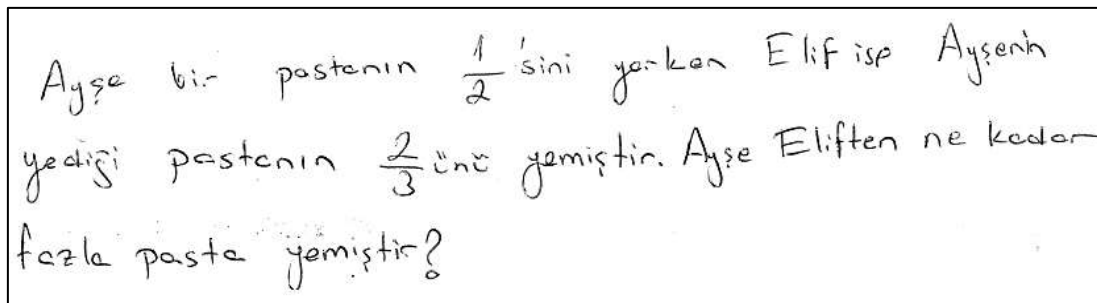 Ayşe bir pastanın 1/2'sini yerken Elif ise Ayşenin
yediği pastanın 2/3 ünü yemiştir. Ayşe Eliften ne kadar
fazla pasta yemiştir?